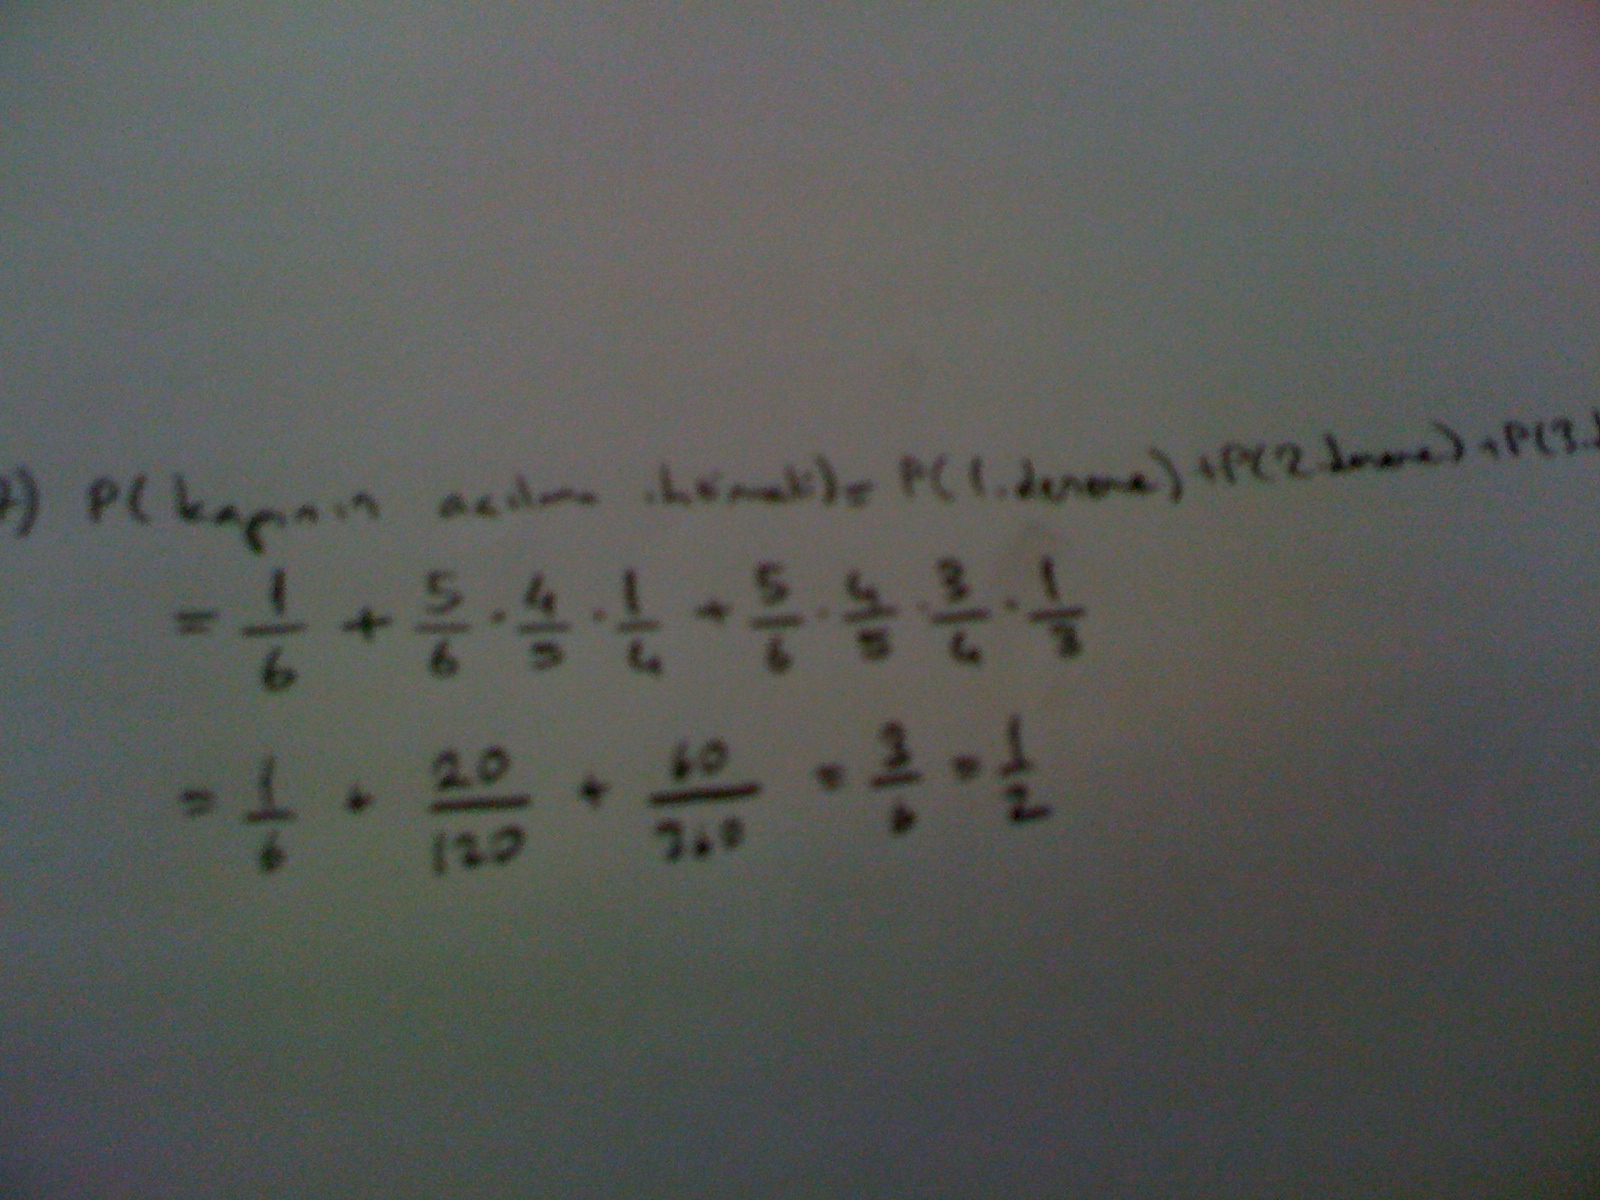 7) P(kapının açılma ihtimali) = P(1.deneme) + P(2.deneme) + P(3.
= 1/6 + 5/6 · 4/5 · 1/4 + 5/6 · 4/5 · 3/4 · 1/3
= 1/6 + 20/120 + 60/360 = 3/6 = 1/2